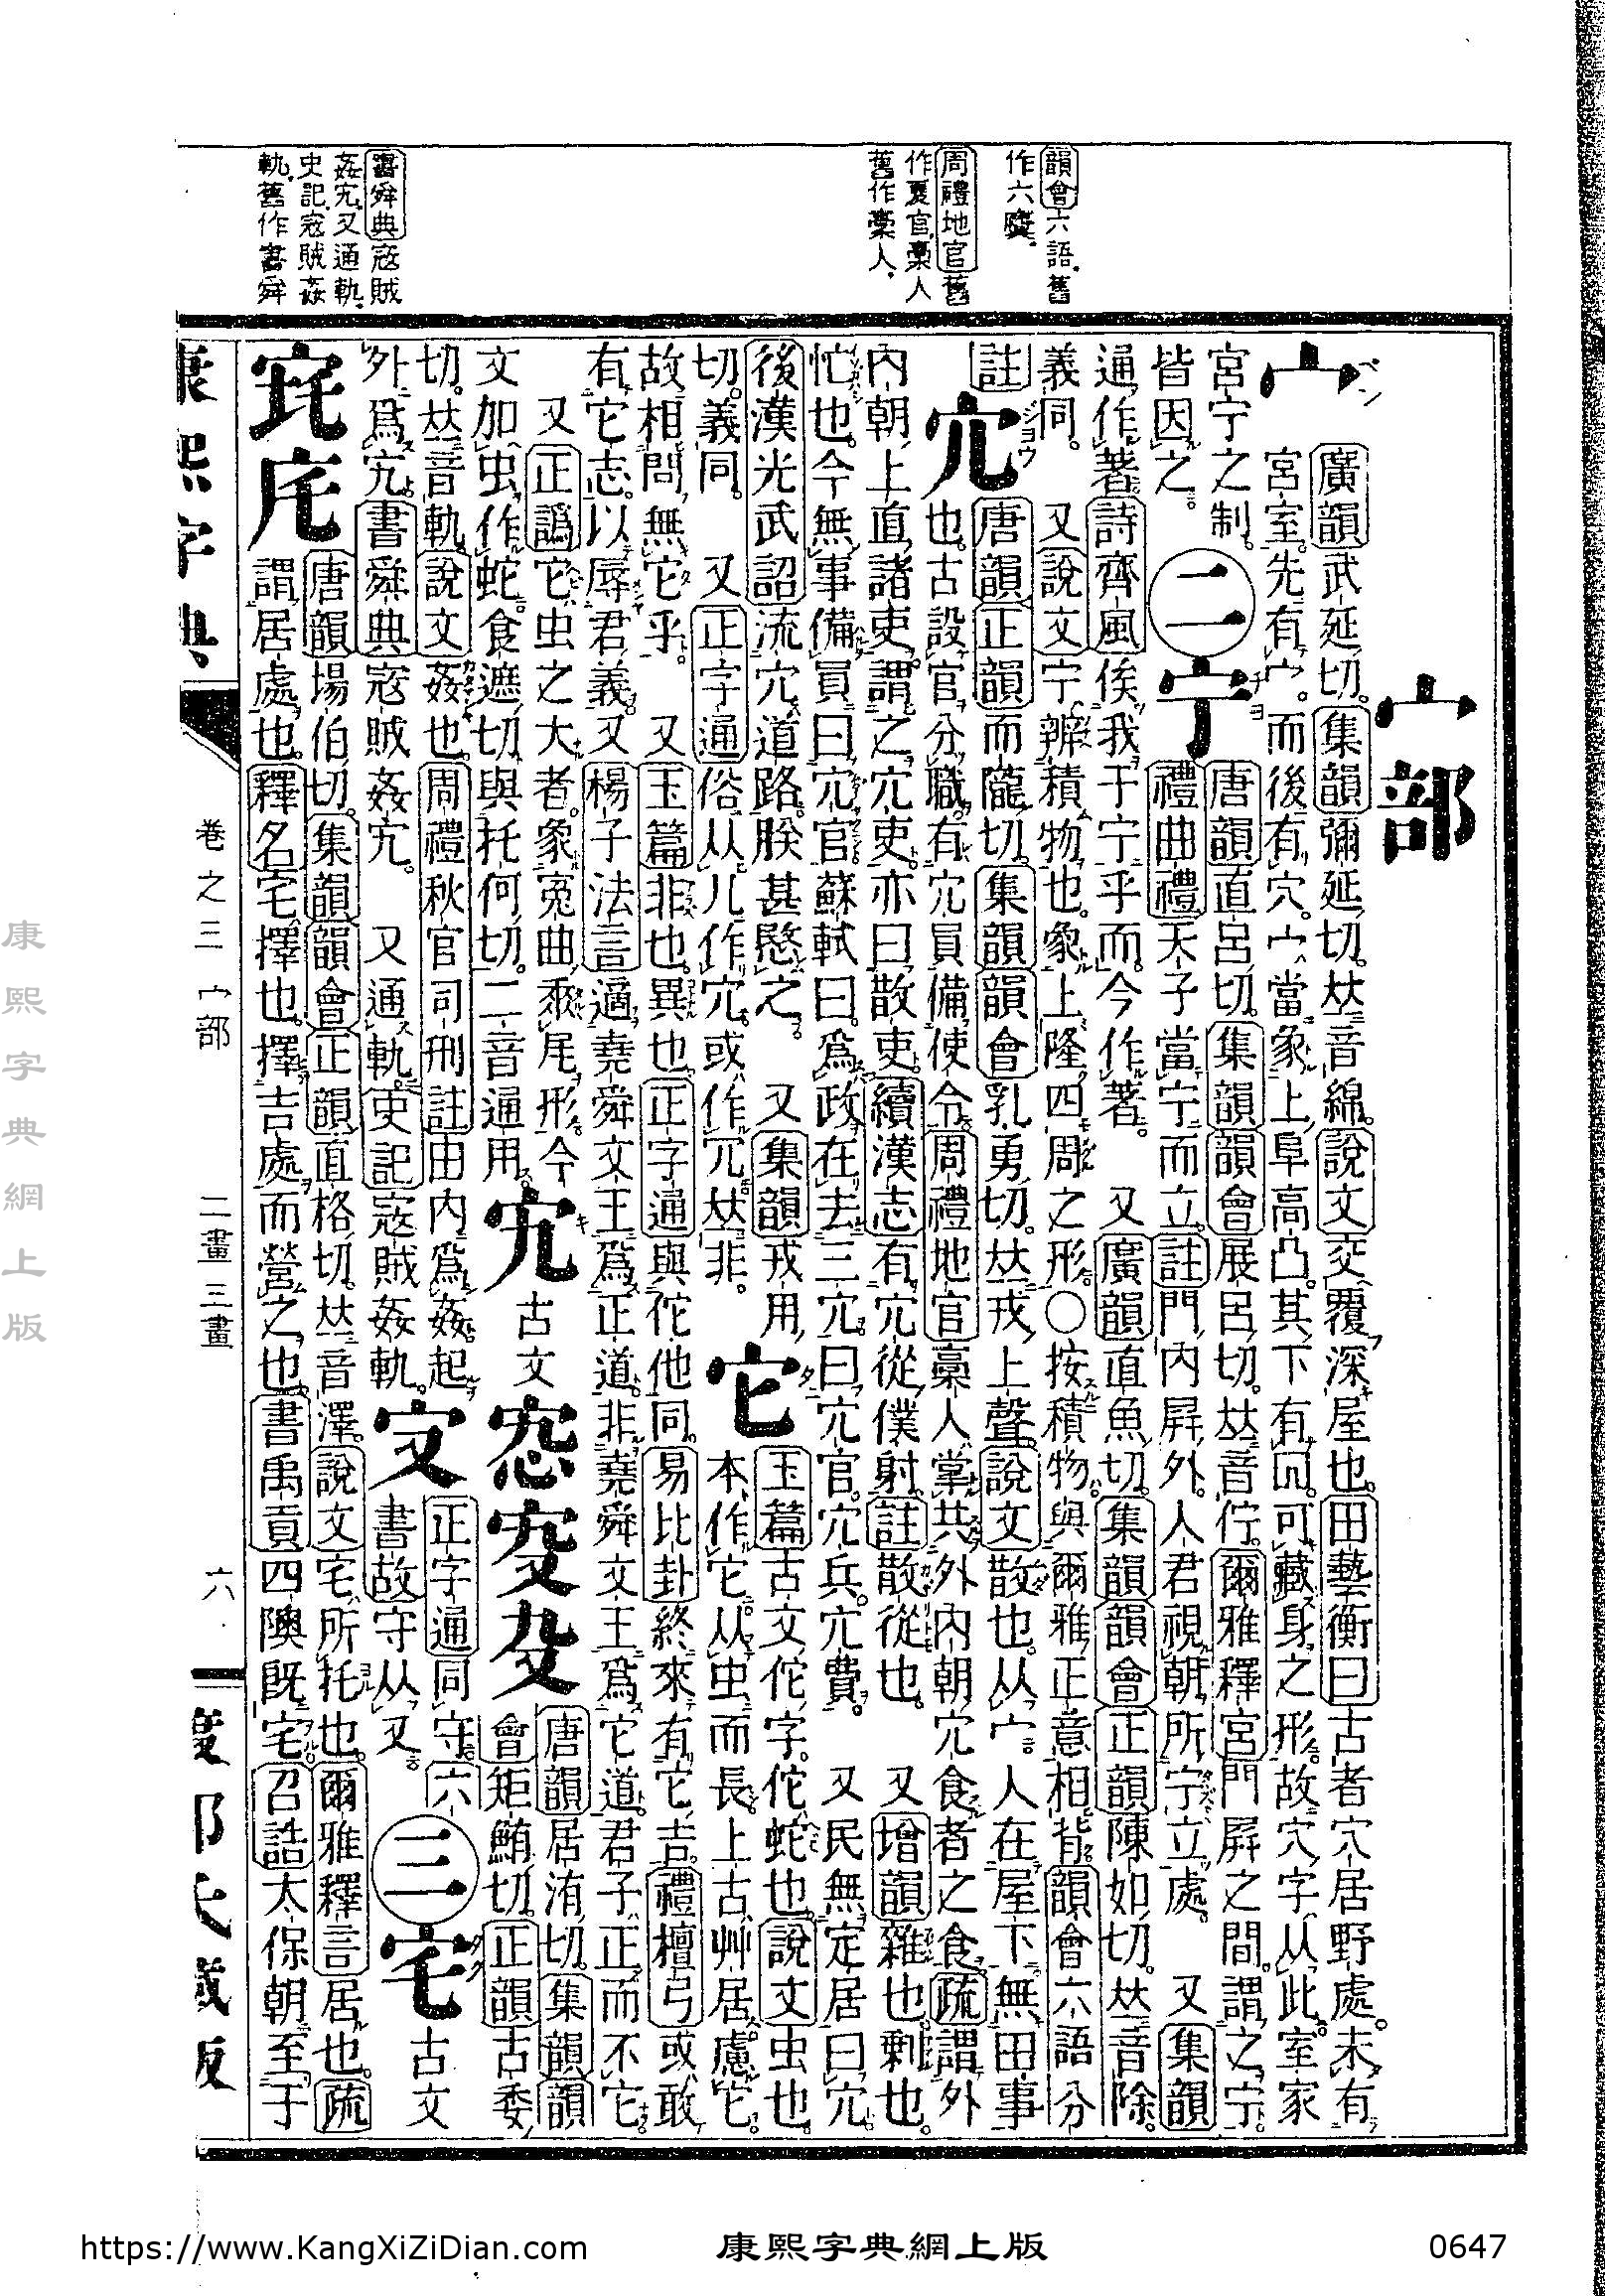 韻會六語舊
作六
周禮地官舊
作夏官槀人
舊作槀人
書舜典寇賊
姦宄又通軌
史記寇賊姦
軌舊作書舜
宀部
宀
廣韻武延切集韻彌延切𠀤音綿說文交覆深屋也田藝衡曰古者穴居野處未有
宮室先有宀而後有穴宀當象上阜高凸其下有𠔿可藏身之形故穴字从此室家
宮宁之制
皆因之
二
宁
唐韻直呂切集韻韻會展呂切𠀤音佇爾雅釋宮門屛之間謂之宁
禮曲禮天子當宁而立註門內屛外人君視朝所宁立處 又集韻
通作著詩齊風俟我于宁乎而今作著 又廣韻直魚切集韻韻會正韻陳如切𠀤音除
義同 又說文宁辨積物也象上隆四周之形○按積物與爾雅正意相背韻會六語分
註
宂
唐韻正韻而隴切集韻韻會乳勇切𠀤戎上聲說文散也从宀人在屋下無田事
也古設官分職有宂員備使令周禮地官槀人掌共外內朝宂食者之食疏謂外
內朝上直諸吏謂之宂吏亦曰散吏續漢志有宂從僕射註散從也 又增韻雜也剩也
忙也今無事備員曰宂官蘇軾曰爲政在去三宂曰宂官宂兵宂費 又民無定居曰宂
後漢光武詔流宂道路朕甚愍之 又集韻戎用
切義同 又正字通俗从儿作宂或作冗𠀤非
它
玉篇古文佗字佗蛇也說文虫也
本作它从虫而長上古艸居慮它
故相問無它乎 又玉篇非也異也正字通與佗他同易比卦終來有它吉禮檀弓或敢
有它志以辱君義 又楊子法言適堯舜文王爲正道非堯舜文王爲它道君子正而不它
又正譌它虫之大者象冤曲垂尾形今
文加虫作蛇食遮切與托何切二音通用
宄
古文
唐韻居洧切集韻韻
會矩鮪切正韻古委
切𠀤音軌說文姦也周禮秋官司刑註由內爲姦起
外爲宄書舜典寇賊姦宄 又通軌史記寇賊姦軌
正字通同守六
書故守从又
三
宅
古文
㡯
唐韻場伯切集韻韻會正韻直格切𠀤音澤說文宅所托也爾雅釋言居也疏
謂居處也釋名宅擇也擇吉處而營之也書禹貢四隩既宅召誥太保朝至于
康熙字典
卷之三 宀部 二畫三畫 六
康熙字典網上版
https://www.KangXiZiDian.com
康熙字典網上版
0647